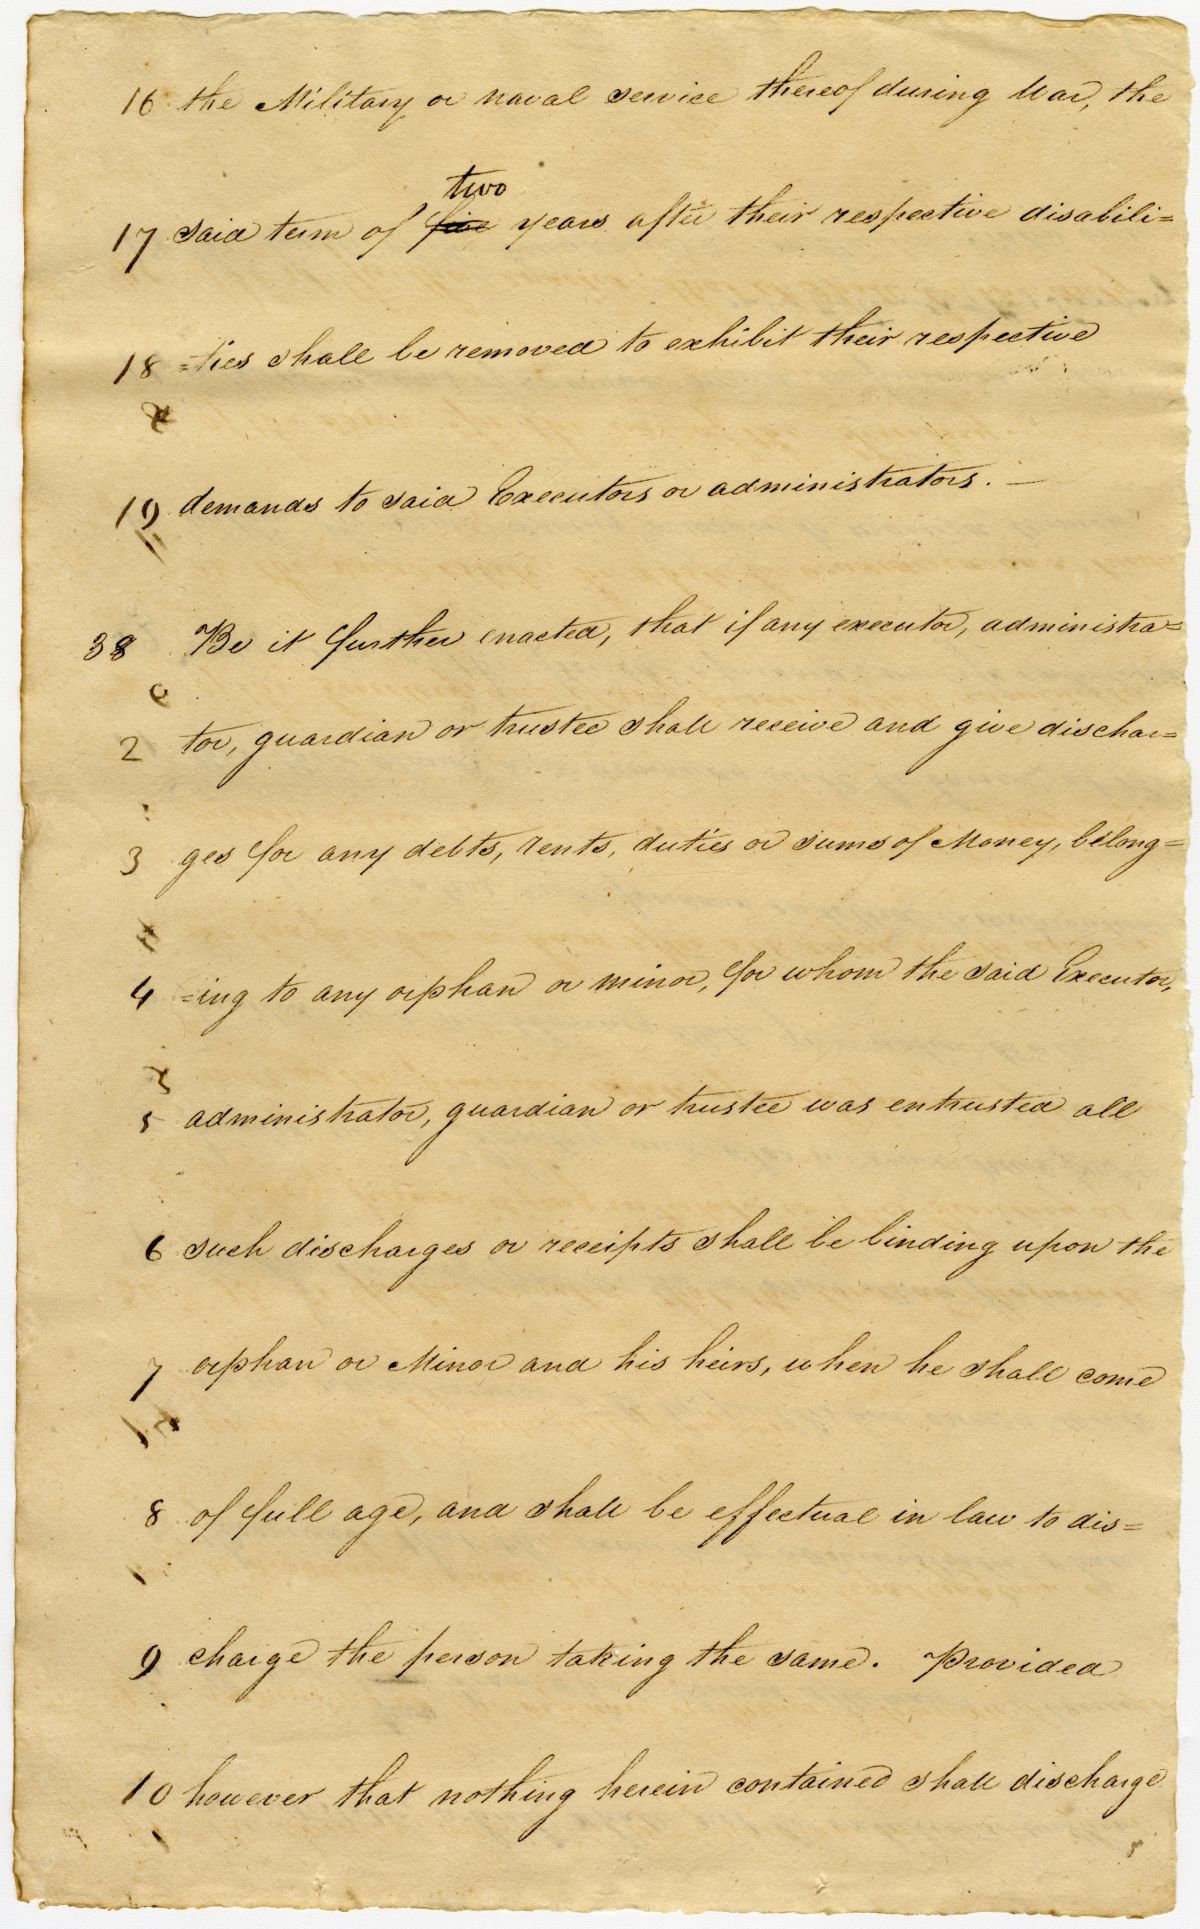 16 the Military or naval service thereof during War, the
two
17 said term of five years after their respective disabili=
18 =ties shall be removed to exhibit their respective
19 demands to said Executors or administrators. —
38 Be it further enacted, that if any executor, administra=
2 tor, guardian or trustee shall receive and give dischar=
3 ges for any debts, rents, duties or sums of Money, belong=
4 =ing to any orphan or minor, for whom the said Executor,
5 administrator, guardian or trustee was entrusted all
6 such discharges or receipts shall be binding upon the
7 orphan or Minor and his heirs, when he shall come
8 of full age, and shall be effectual in law to dis=
9 charge the person taking the same. Provided
10 however that nothing herein contained shall discharge